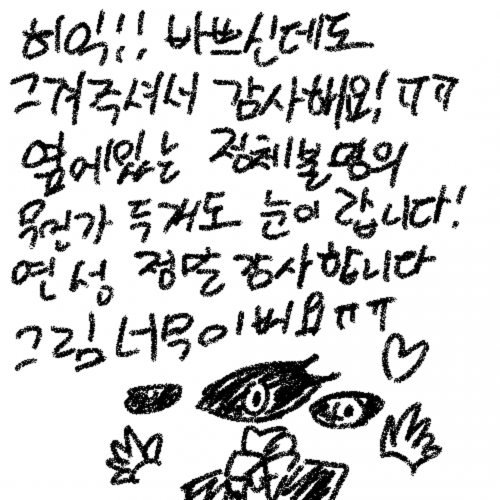 허억!! 바쁘신데도
그려주셔서 감사해요! ㅠㅠ
옆에있는 정체불명의
무언가 득거도 눈이 랍니다!
연성 정말 감사합니다
그림 너무이뻐요ㅠㅠ